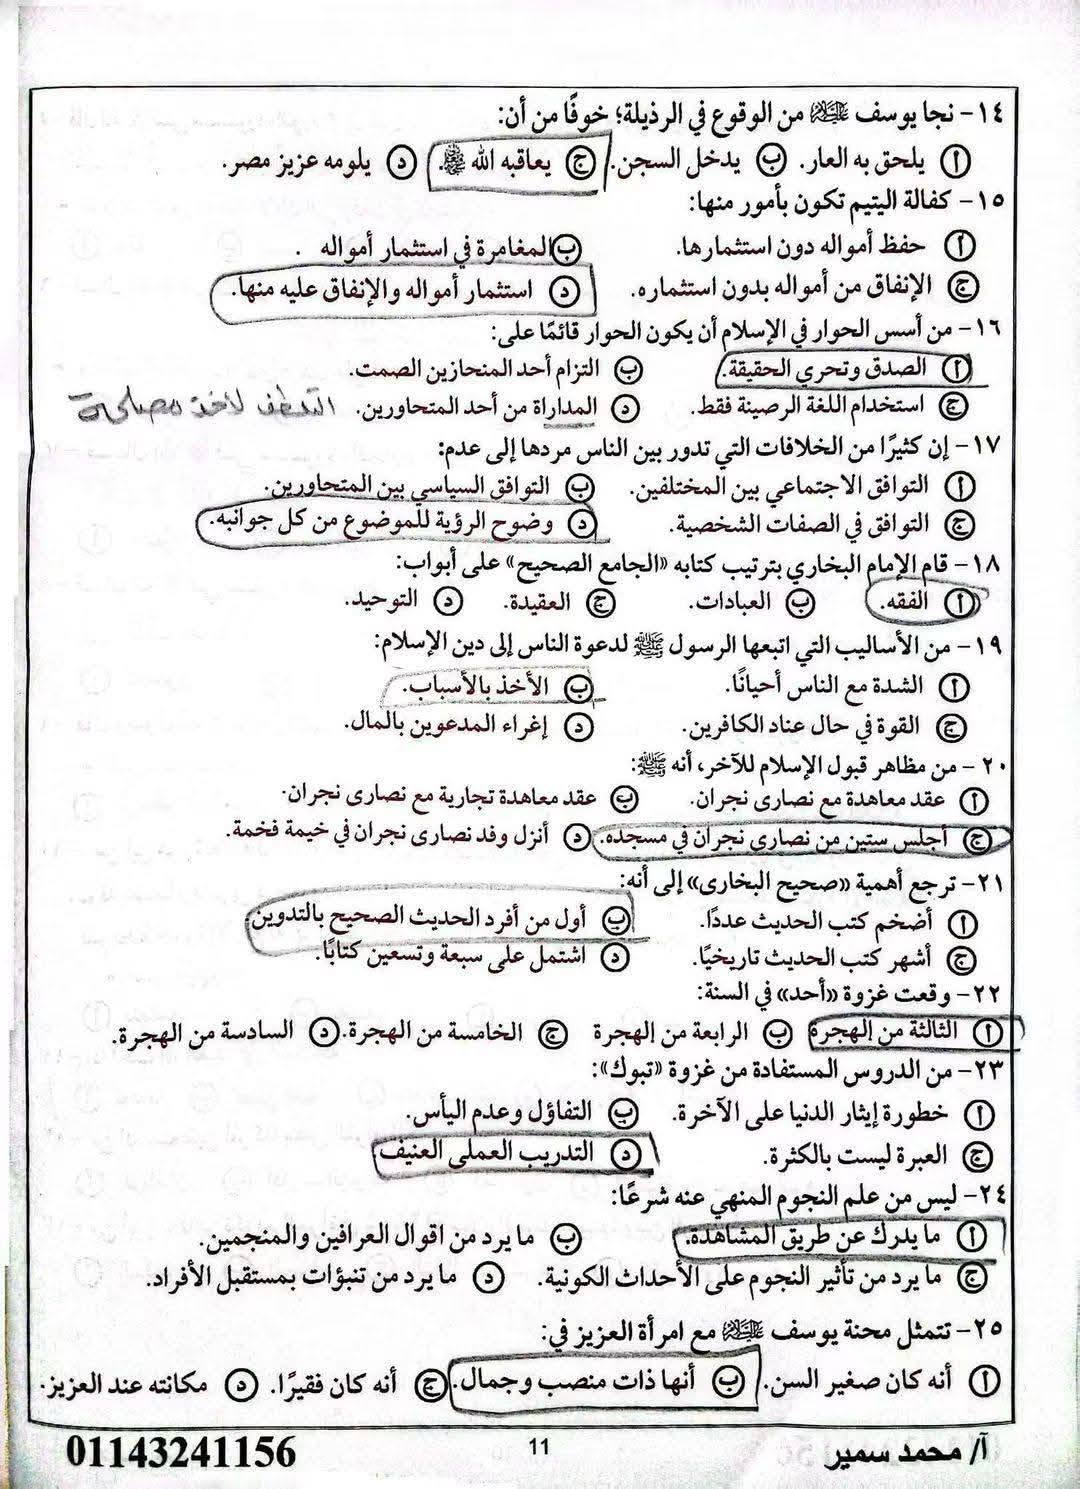 ١٤- نجا يوسف عليه السلام من الوقوع في الرذيلة؛ خوفًا من أن:
أ يلحق به العار. ب يدخل السجن. ج يعاقبه الله ﷻ. د يلومه عزيز مصر.
١٥- كفالة اليتيم تكون بأمور منها:
أ حفظ أمواله دون استثمارها. ب المغامرة في استثمار أمواله .
ج الإنفاق من أمواله بدون استثماره. د استثمار أمواله والإنفاق عليه منها.
١٦- من أسس الحوار في الإسلام أن يكون الحوار قائمًا على:
أ الصدق وتحري الحقيقة. ب التزام أحد المنحازين الصمت.
ج استخدام اللغة الرصينة فقط. د المداراة من أحد المتحاورين. التلطف لأخذ مصلحة
١٧- إن كثيرًا من الخلافات التي تدور بين الناس مردها إلى عدم:
أ التوافق الاجتماعي بين المختلفين. ب التوافق السياسي بين المتحاورين.
ج التوافق في الصفات الشخصية. د وضوح الرؤية للموضوع من كل جوانبه.
١٨- قام الإمام البخاري بترتيب كتابه «الجامع الصحيح» على أبواب:
أ الفقه. ب العبادات. ج العقيدة. د التوحيد.
١٩- من الأساليب التي اتبعها الرسول ﷺ لدعوة الناس إلى دين الإسلام:
أ الشدة مع الناس أحيانًا. ب الأخذ بالأسباب.
ج القوة في حال عناد الكافرين. د إغراء المدعوين بالمال.
٢٠- من مظاهر قبول الإسلام للآخر، أنه ﷺ:
أ عقد معاهدة مع نصارى نجران. ب عقد معاهدة تجارية مع نصارى نجران.
ج أجلس ستين من نصارى نجران في مسجده. د أنزل وفد نصارى نجران في خيمة فخمة.
٢١- ترجع أهمية «صحيح البخارى» إلى أنه:
أ أضخم كتب الحديث عددًا. ب أول من أفرد الحديث الصحيح بالتدوين
ج أشهر كتب الحديث تاريخيًا. د اشتمل على سبعة وتسعين كتابًا.
٢٢- وقعت غزوة «أحد» في السنة:
أ الثالثة من الهجرة ب الرابعة من الهجرة ج الخامسة من الهجرة. د السادسة من الهجرة.
٢٣- من الدروس المستفادة من غزوة «تبوك»:
أ خطورة إيثار الدنيا على الآخرة. ب التفاؤل وعدم اليأس.
ج العبرة ليست بالكثرة. د التدريب العملى العنيف
٢٤- ليس من علم النجوم المنهي عنه شرعًا:
أ ما يدرك عن طريق المشاهدة. ب ما يرد من اقوال العرافين والمنجمين.
ج ما يرد من تأثير النجوم على الأحداث الكونية. د ما يرد من تنبؤات بمستقبل الأفراد.
٢٥- تتمثل محنة يوسف عليه السلام مع امرأة العزيز في:
أ أنه كان صغير السن. ب أنها ذات منصب وجمال. ج أنه كان فقيرًا. د مكانته عند العزيز.
آ/ محمد سمير 11 01143241156